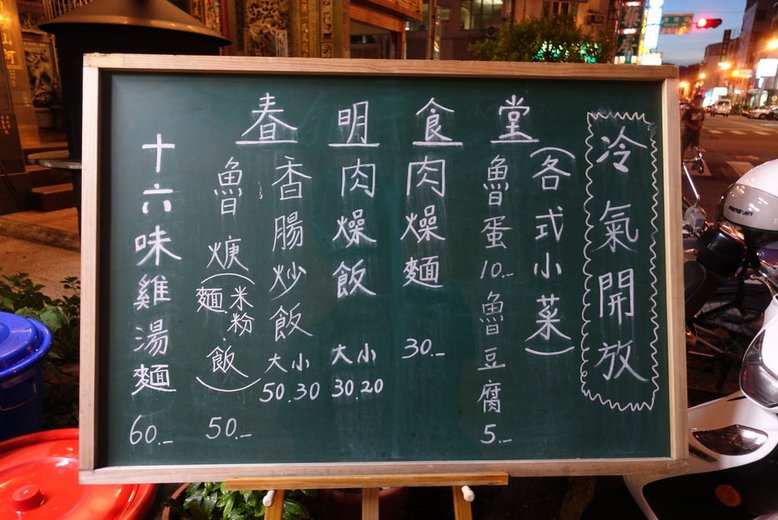 春明食堂
冷氣開放
(各式小菜)
魯蛋10.- 魯豆腐5.-
肉燥麵 30.-
肉燥飯 大小 30.20
香腸炒飯 大小 50.30
魯焿(米粉 麵 飯) 50.-
十六味雞湯麵 60.-